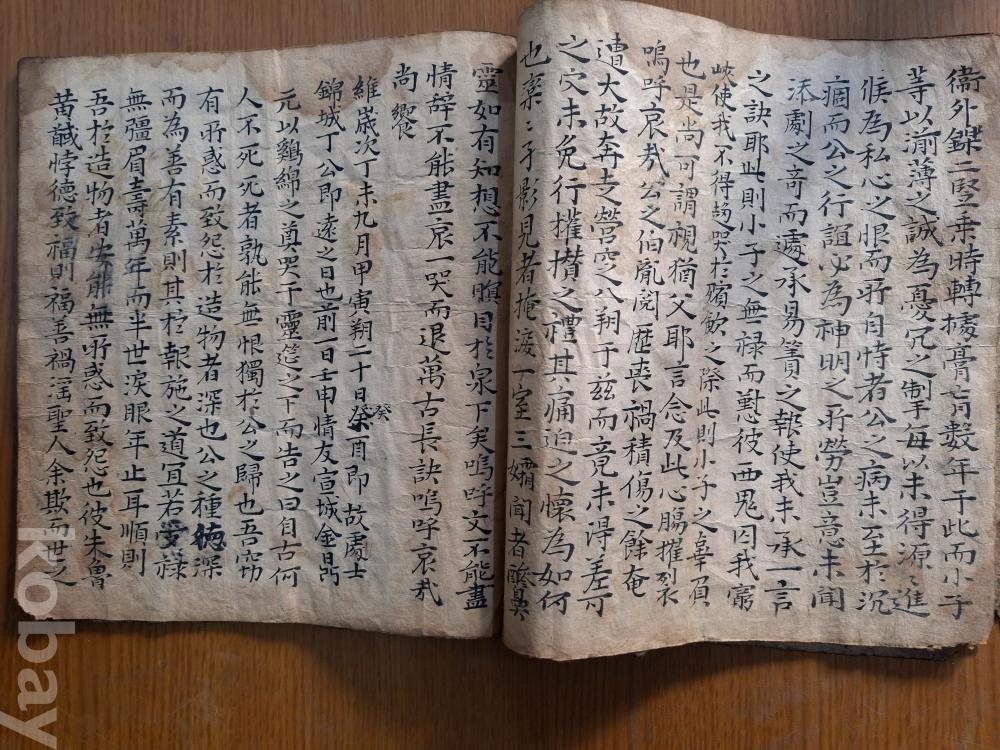 衞外鍱二竪乗時轉據膏肓數年于此而小子
等以淺薄之誠為憂冗之制每以未得源〻進
候為私心之恨而所自恃者公之病未至於沉
痼而公之行誼必為神明之所勞豈意未聞
添劇之奇而遽承易簀之報使我未承一言
之訣耶此則小子之無祿而懟彼西鬼因我窮
峽使我不得趨哭於殯歛之際此則小子之辜負
也是尚可謂視猶父耶言念及此心膓摧裂
嗚呼哀哉公之伯胤閱歷喪禍積傷之餘奄
遭大故奔走營空八朔于玆而竟未得羞可
之穴未免行權攅之禮其痛迫之懷為如何
也稾〻孑影見者掩淚一室三孀聞者酸鼻
靈如有知想不能瞑目於泉下矣嗚呼文不能盡
情辞不能盡哀一哭而退萬古長訣嗚呼哀哉
尚饗
維歲次丁未九月甲寅朔二十日癸酉即故處士
癸
錦城丁公即遠之日也前一日壬申情友宣城金昺
元以鷄綿之奠哭于靈筵之下而告之曰自古何
人不死死者孰能無恨獨於公之歸也吾窃
有所惑而致怨於造物者深也公之種德深
而為善有素則其於報施之道宜若受祿
無彊眉壽萬年而半世淚眼年止耳順則
吾於造物者安能無所惑而致怨也彼朱魯
黃馘悖德致福則福善禍淫聖人余欺而世之
kobay